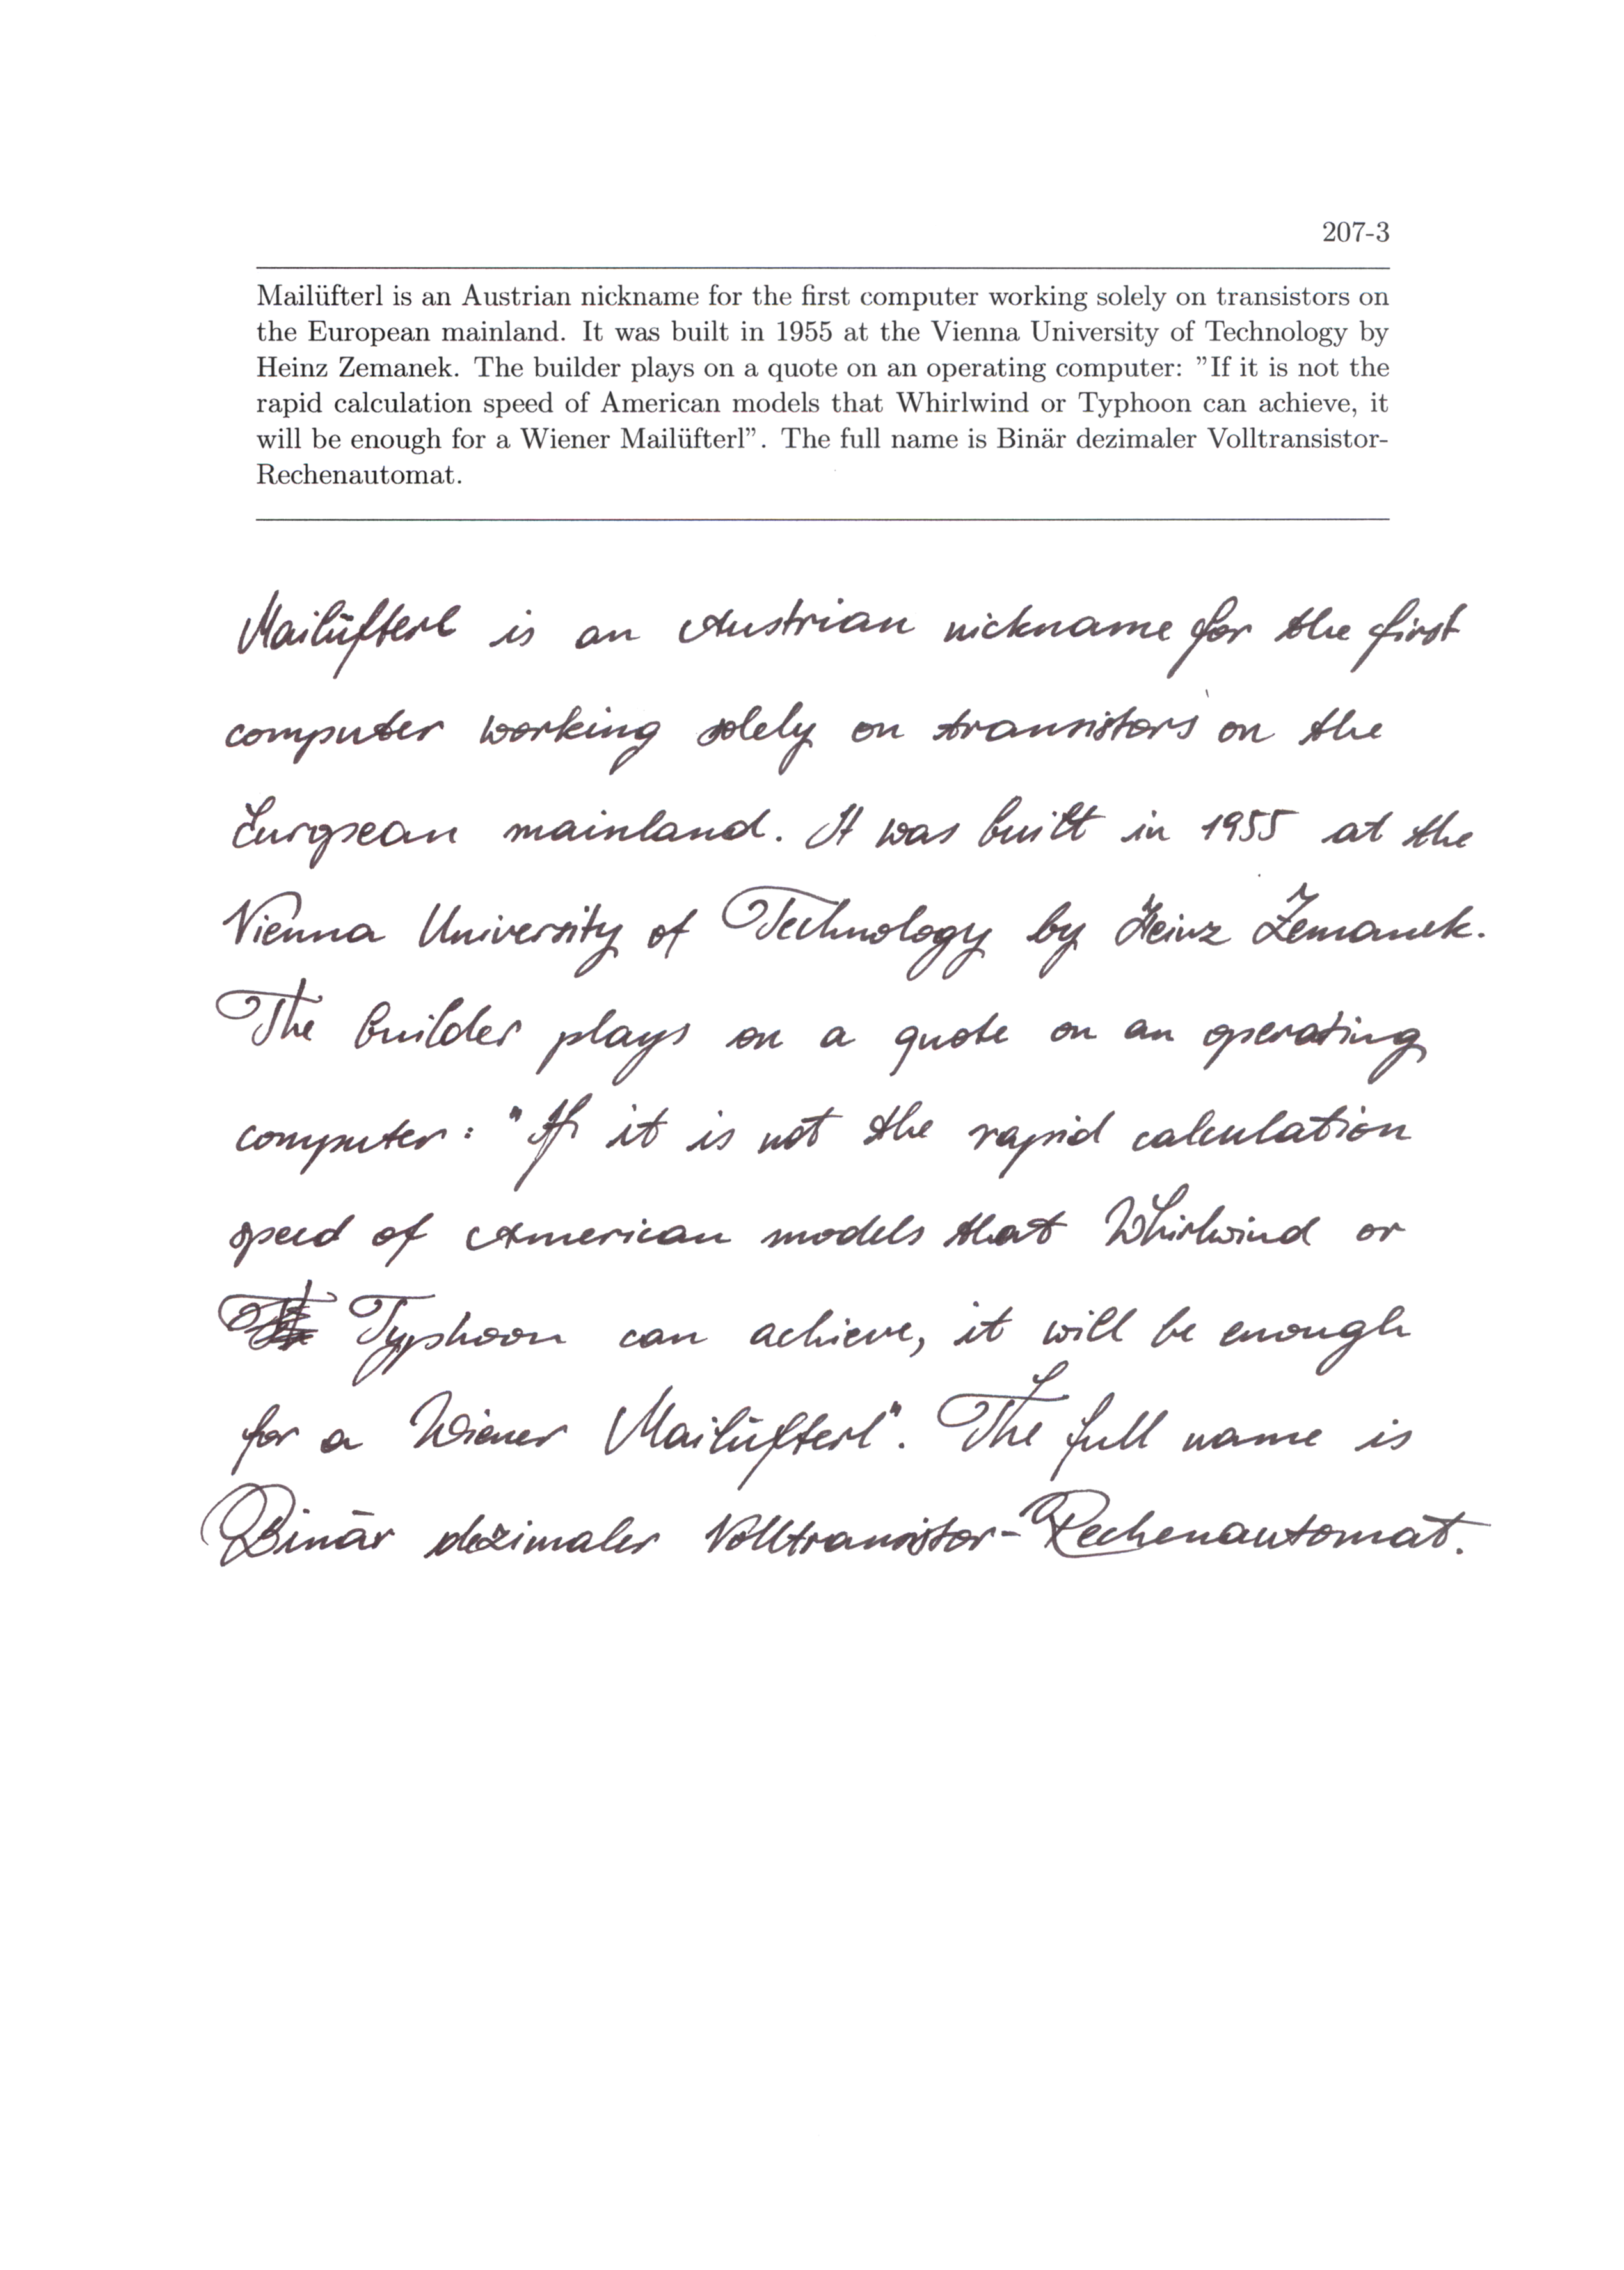 207-3
Mailüfterl is an Austrian nickname for the first computer working solely on transistors on
the European mainland. It was built in 1955 at the Vienna University of Technology by
Heinz Zemanek. The builder plays on a quote on an operating computer: ”If it is not the
rapid calculation speed of American models that Whirlwind or Typhoon can achieve, it
will be enough for a Wiener Mailüfterl”. The full name is Binär dezimaler Volltransistor-
Rechenautomat.
Mailüfterl is an Austrian nickname for the first
computer working solely on transistors on the
European mainland. It was built in 1955 at the
Vienna University of Technology by Heinz Zemanek.
The builder plays on a quote on an operating
computer: "If it is not the rapid calculation
speed of American models that Whirlwind or
Typhoon can achieve, it will be enough
for a Wiener Mailüfterl". The full name is
Binär dezimaler Volltransistor-Rechenautomat.